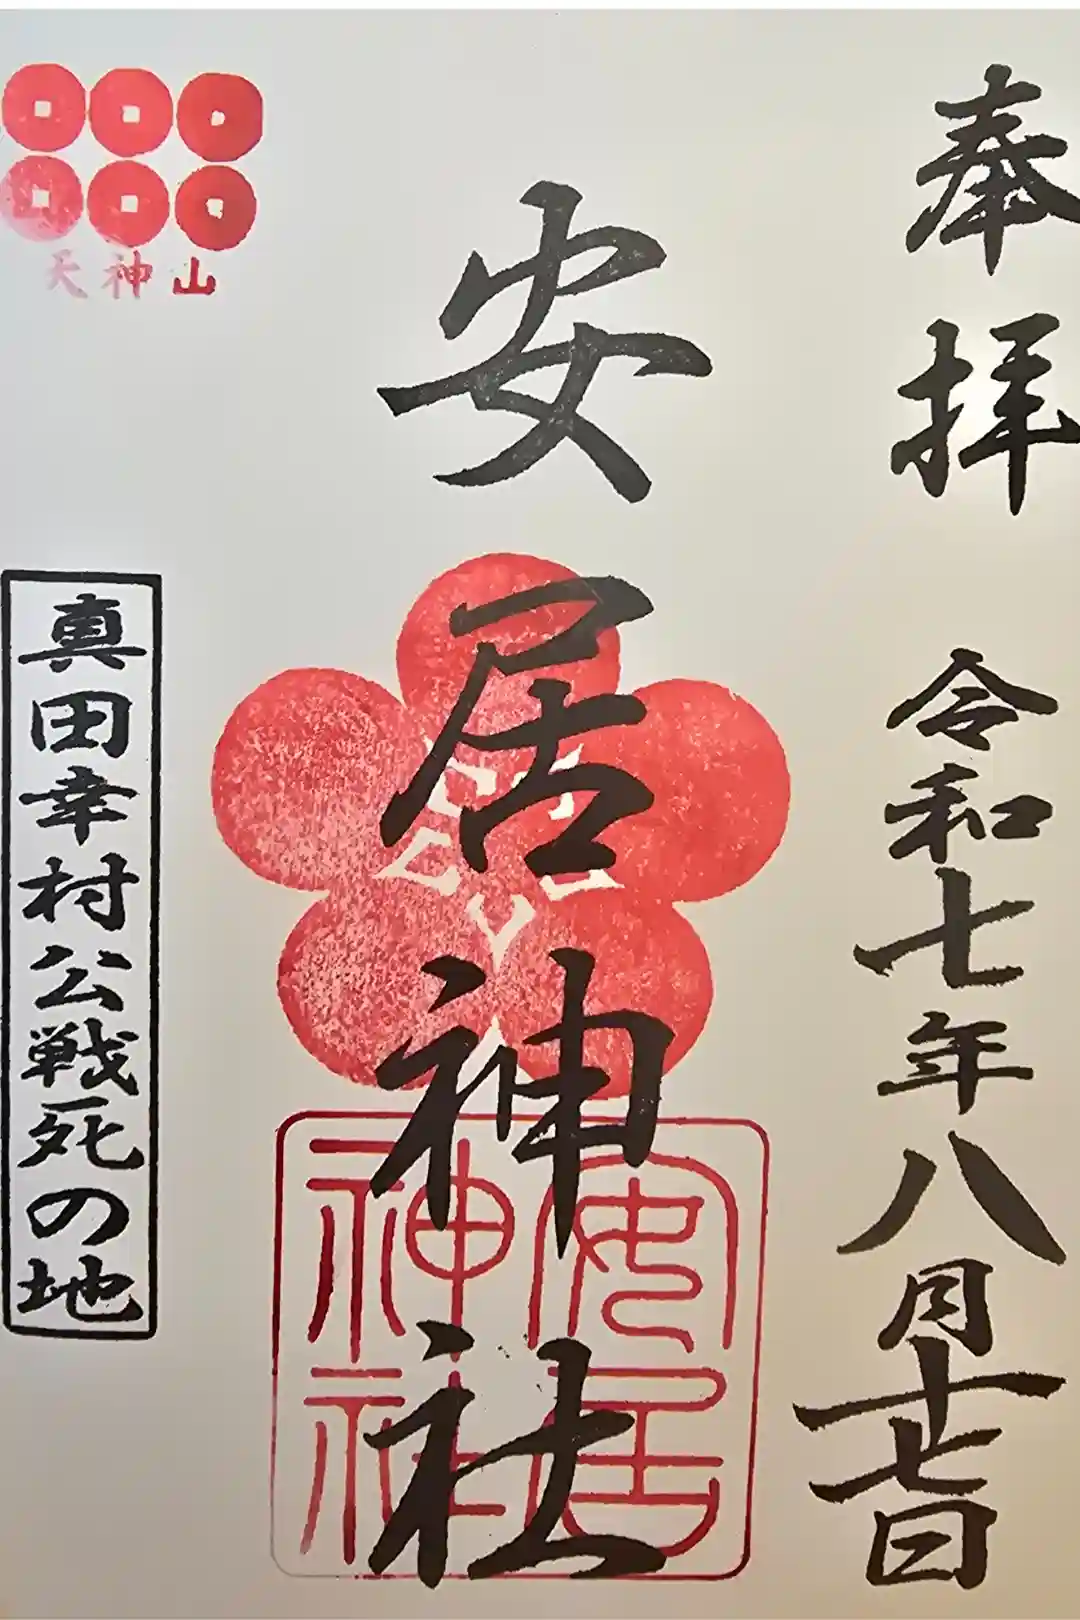 奉拝
令和七年八月十七日
安居神社
安居
神社
天神山
真田幸村公戦死の地